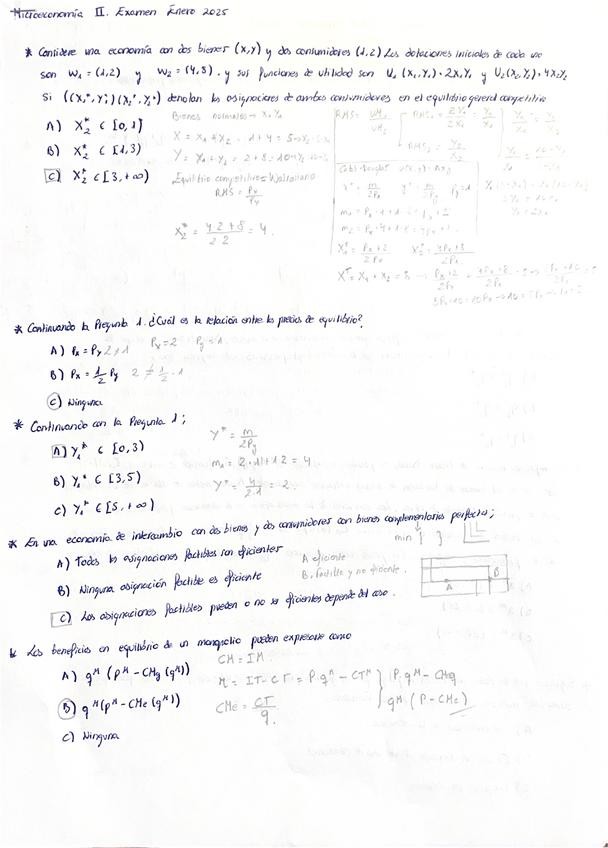 Microeconomía II. Examen Enero 2025
* Considere una economía con dos bienes (x,y) y dos consumidores (1,2) Las dotaciones iniciales de cada uno
son W₁ = (1,2) y W₂ = (4,8). y sus funciones de utilidad son U₁ (X₁,Y₁) = 2X₁Y₁ y U₂(X₂,Y₂) = 4X₂Y₂
Si ((X₁*, Y₁*)(X₂*, Y₂*) denotan las asignaciones de ambos consumidores en el equilibrio general competitivo
A) X₂* ∈ [0,1]
B) X₂* ∈ [1,3)
C) X₂* ∈ [3, +∞)
Bienes normales → X₁Y₁
X = X₁ + X₂ = 1+4 = 5
Y = Y₁ + Y₂ = 2+8 = 10
Equilibrio competitivo = Walrasiano
RMS = Px/Py
X₂* = 4·2+8 / 2·2 = 4.
Cobb-Douglas
X₁* = Px+2 / 2Px X₂* = 4Px+8 / 2Px
* Continuando la Pregunta 1. ¿Cuál es la relación entre los precios de equilibrio?
A) Px = Py 2≠1 Px=2 Py=1.
B) Px = 1/2 Py 2 ≠ 1/2 · 1
C) Ninguna
* Continuando con la Pregunta 1;
A) Y₁* ∈ [0,3)
B) Y₁* ∈ [3,5)
C) Y₁* ∈ [5, +∞)
Y* = m/2Py
m₁ = 2·1+1·2 = 4
Y* = 4/2·1 = 2.
* En una economía de intercambio con dos bienes y dos consumidores con bienes complementarios perfectos;
min { }
A) Todas las asignaciones factibles son eficientes
B) Ninguna asignación factible es eficiente
C) Las asignaciones factibles pueden o no ser eficientes depende del caso.
A eficiente
B, factible y no eficiente.
A
B
* Los beneficios en equilibrio de un monopolio pueden expresarse como
A) qᴹ (pᴹ - CMg (qᴹ))
B) qᴹ(pᴹ - CMe (qᴹ))
C) Ninguna
CM = IM.
= IT - CT = P·qᴹ - CTᴹ
CMe = CT/q.
P·qᴹ - CMeq
qᴹ·(P-CMe)